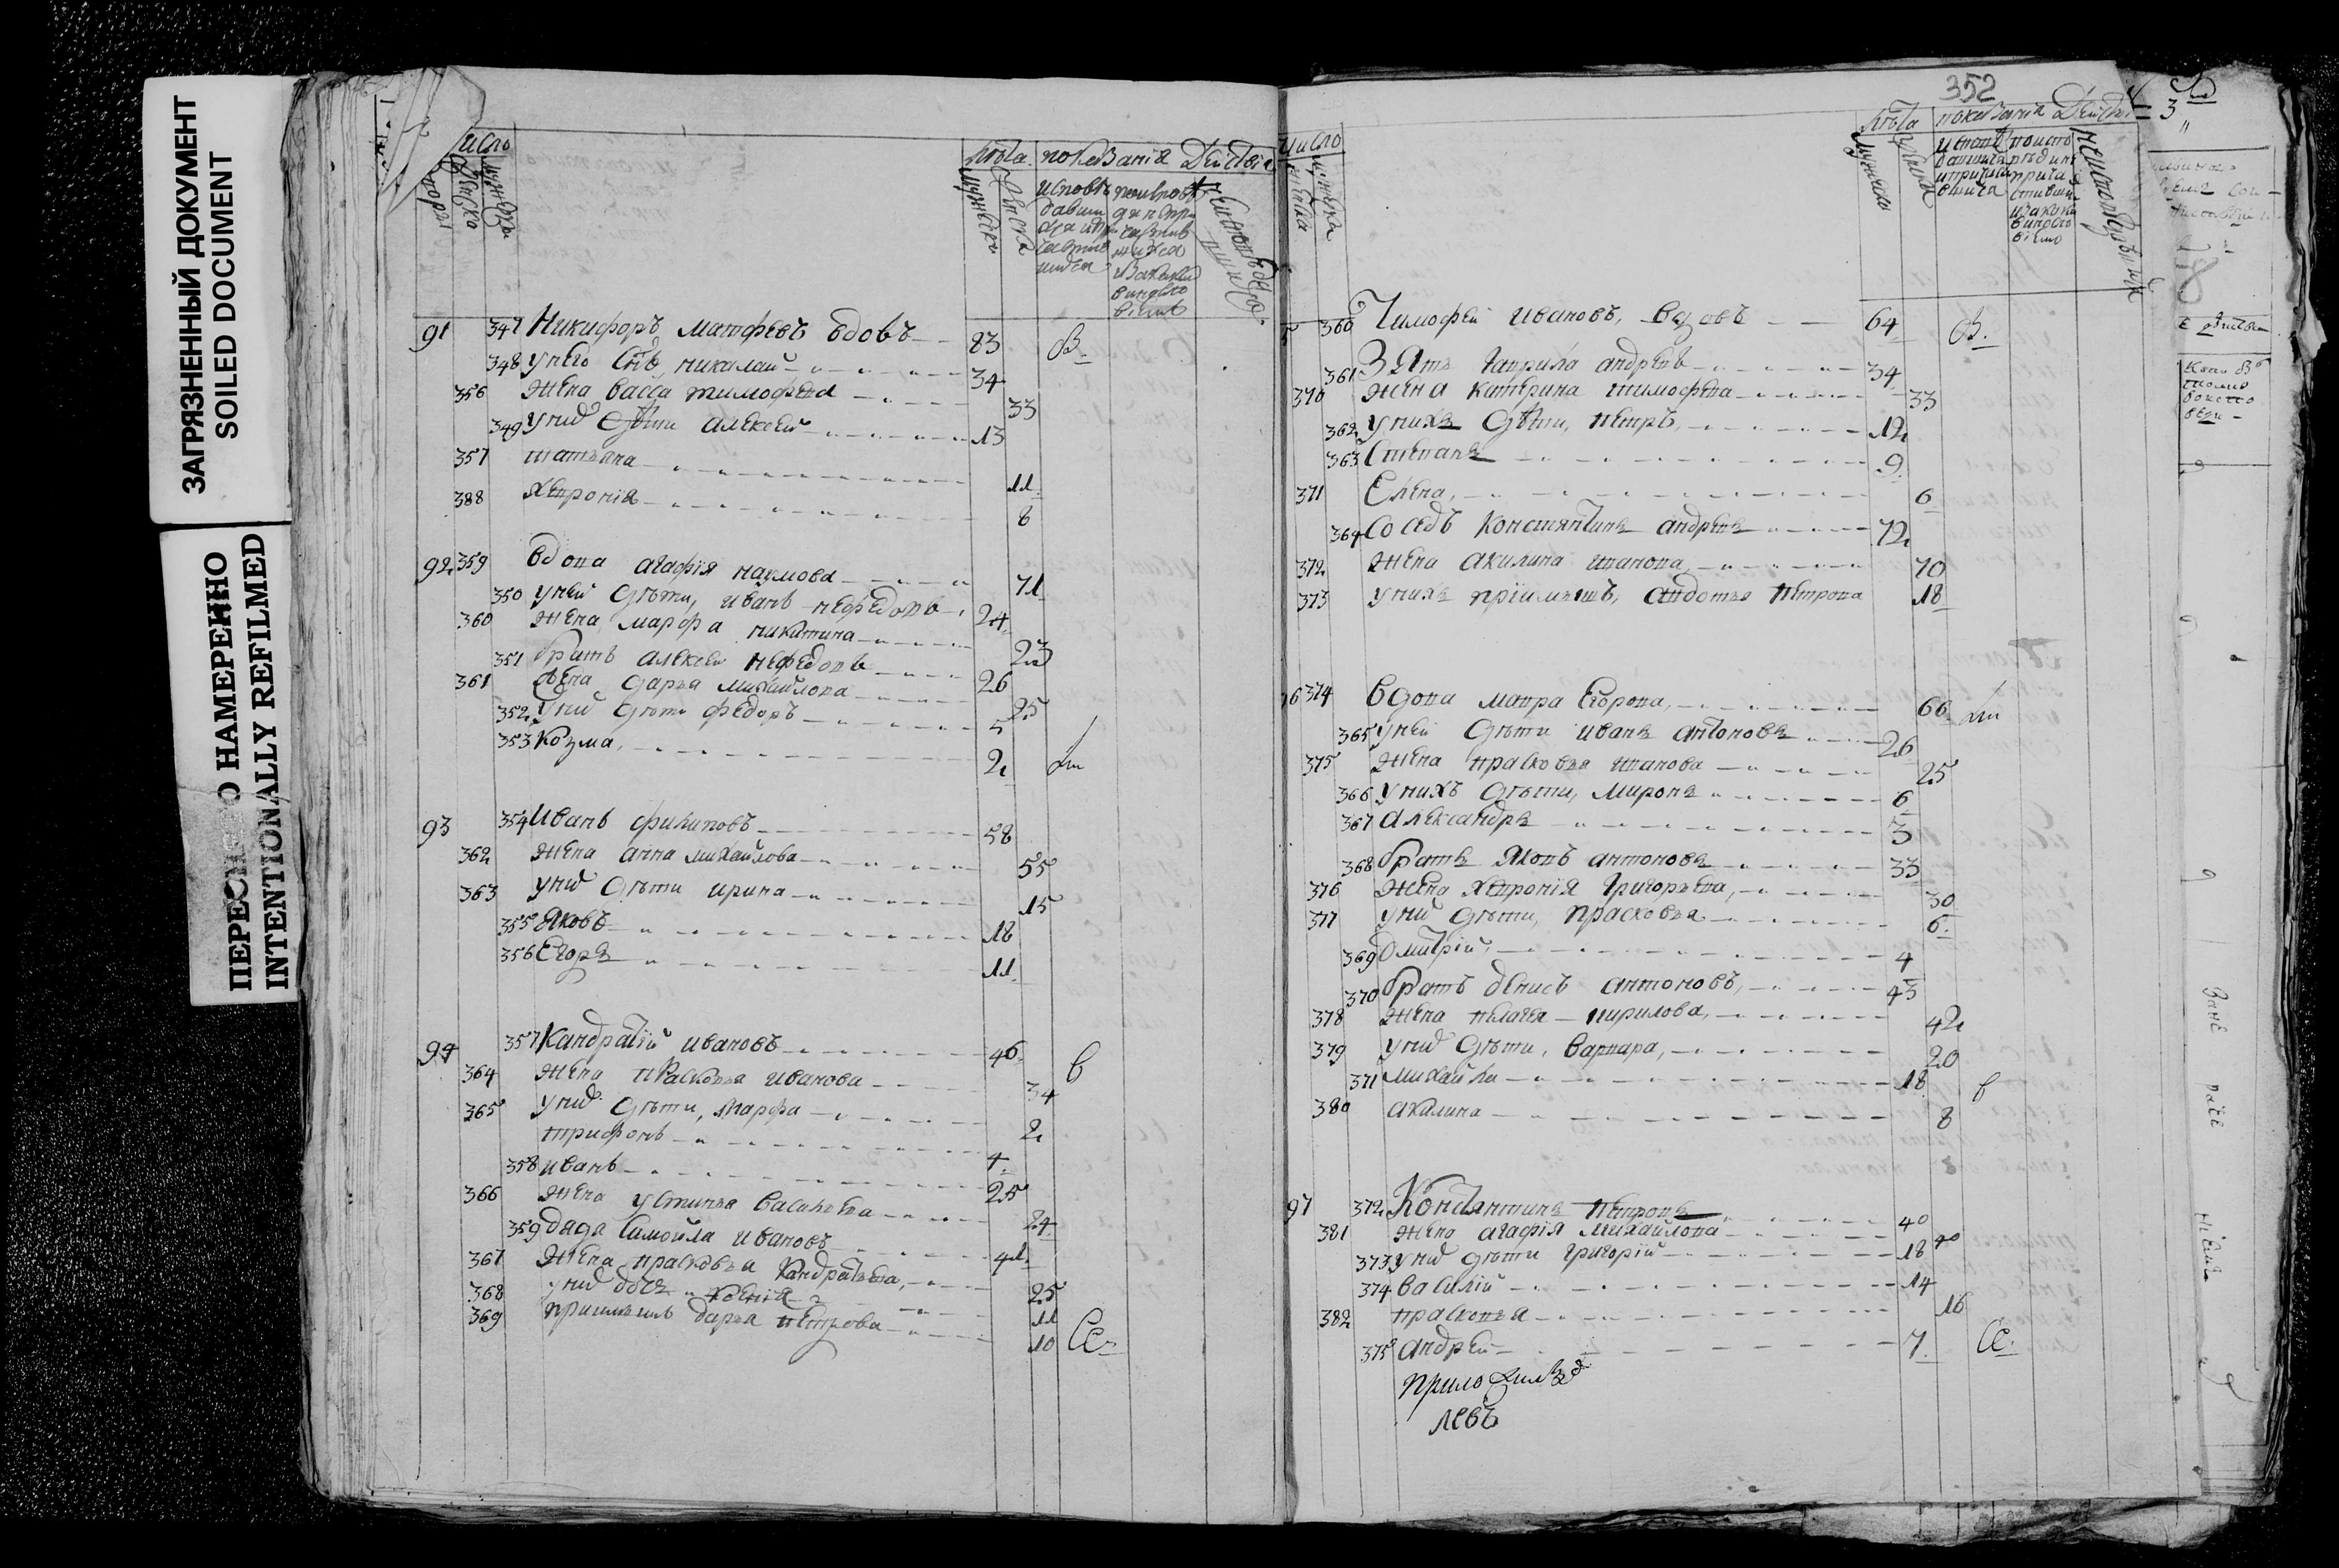 ЗАГРЯЗНЕННЫЙ ДОКУМЕНТ
SOILED DOCUMENT
НАМЕРЕННО
INTENTIONALLY REFILMED
число
дворы
женско
мужеска
лѣта показания действия
мужеска
женска
91 347 Никифоръ матфеевъ вдовъ 83 В.
348 у него снъ николай 34
356 жена васса тимофеева 33
349 у них дѣти алексей 13
357 татьяна 11
388 хевронія 8
92 359 вдова агафія наумова 71
350 у ней дѣти, иванъ нефедовъ 24
360 жена марфа никитина 23
351 братъ алексеи нефедовъ 26
361 жена дарья михайлова 25
352 у них дѣти федоръ 5
353 козма, 2
93 354 Иванъ филиповъ 58
362 жена анна михайлова 55
363 у них дѣти ирина 15
355 Яковъ 18
356 Егоръ 11
94 357 Кандратій ивановъ 46 в
364 жена прасковья иванова 34
365 у них дѣти, марфа 2
трифонъ 4
358 иванъ 25
366 жена устинья васильева 24
359 дядя самойла ивановъ 41
367 жена прасковья кандратьева, 25
368 у них дочь 11
369 приимышъ дарья петрова 10 Сс.
352
число
женска
мужеска
лѣта показания действи
мужеска
женска
360 Тимофей ивановъ, вдовъ 64 В.
361 Зять гаврила андреевъ 34
370 жена катерина тимофеева 33
362 у нихъ дѣти, петръ, 12
363 Степанъ 9
371 Елена, 6
364 сосѣдъ константинъ андреевъ 72
372 жена акилина иванова, 70
373 у нихъ пріимышъ, авдотья петрова 18
6 374 вдова мавра егорова, 66
365 у ней дѣти иванъ антоновъ 26
375 жена прасковья иванова 25
366 у нихъ дѣти, миронъ 6
367 александръ 3
368 братъ яковъ антоновъ 33
376 жена хевронія григорьева, 30
377 у них дѣти, прасковья 6.
369 дмитрій, 4
370 братъ денисъ антоновъ, 43
378 жена пелагея кирилова, 42
379 у них дѣти, варвара, 20
371 михайла 18 в
380 акилина 8
97 372 Константинъ петровъ 40
381 жена агафія михайлова 40
373 у них дѣти григорій 18
374 василій 14
382 прасковья 16
375 андрей 7. Сс.
левъ